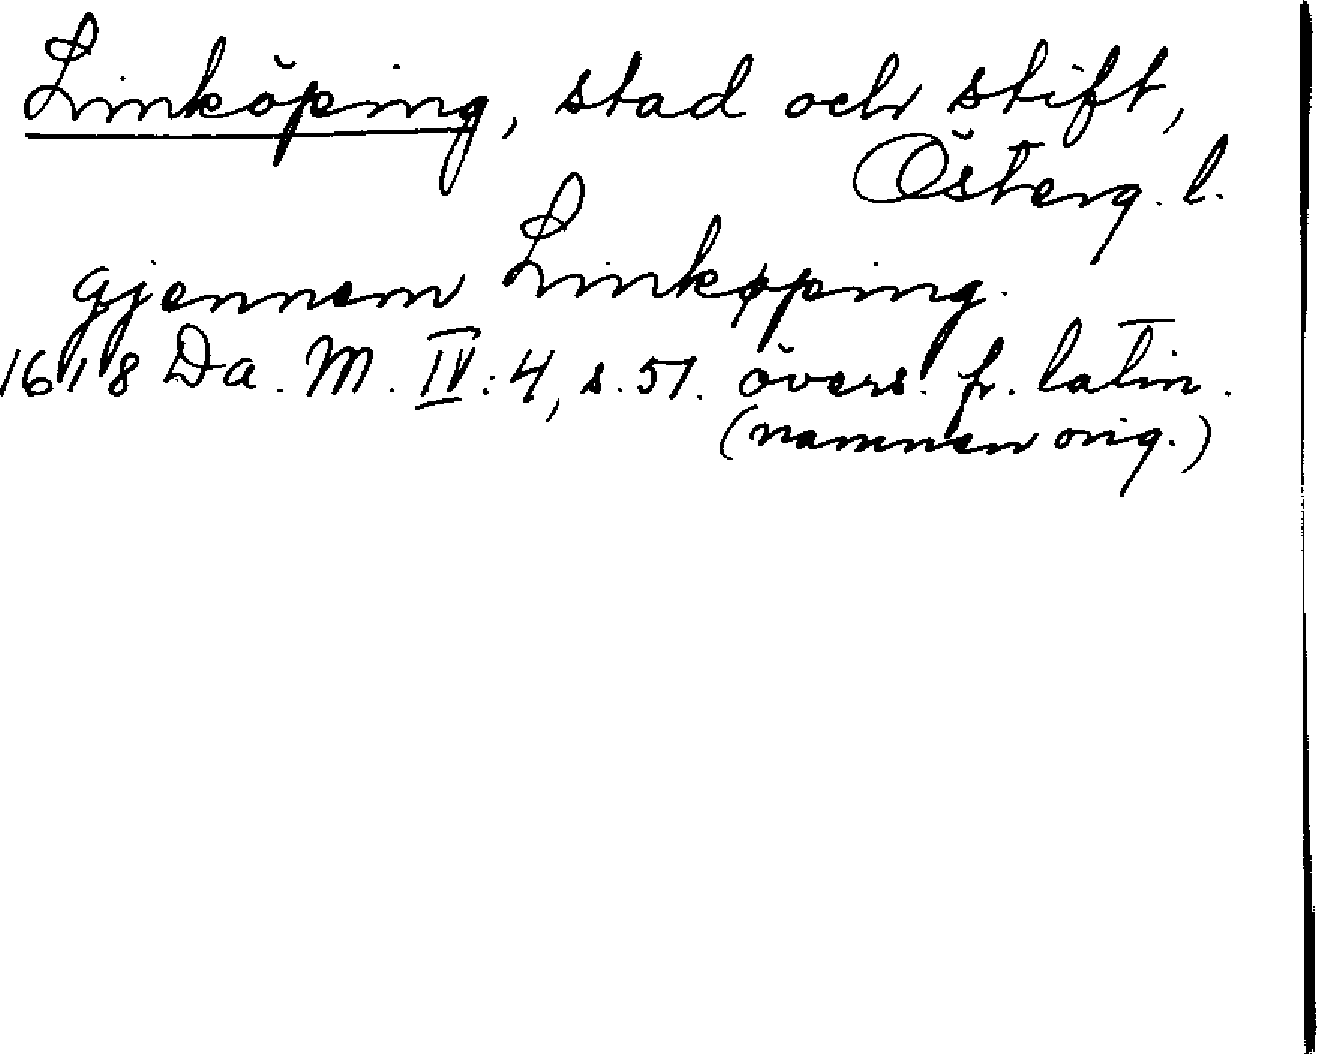 Linköping, stad och stift,
Österg. l.
gjennem Linkøping.
1618 Da. M. IV: 4, s. 51. övers. fr. latin.
(namnen orig.)